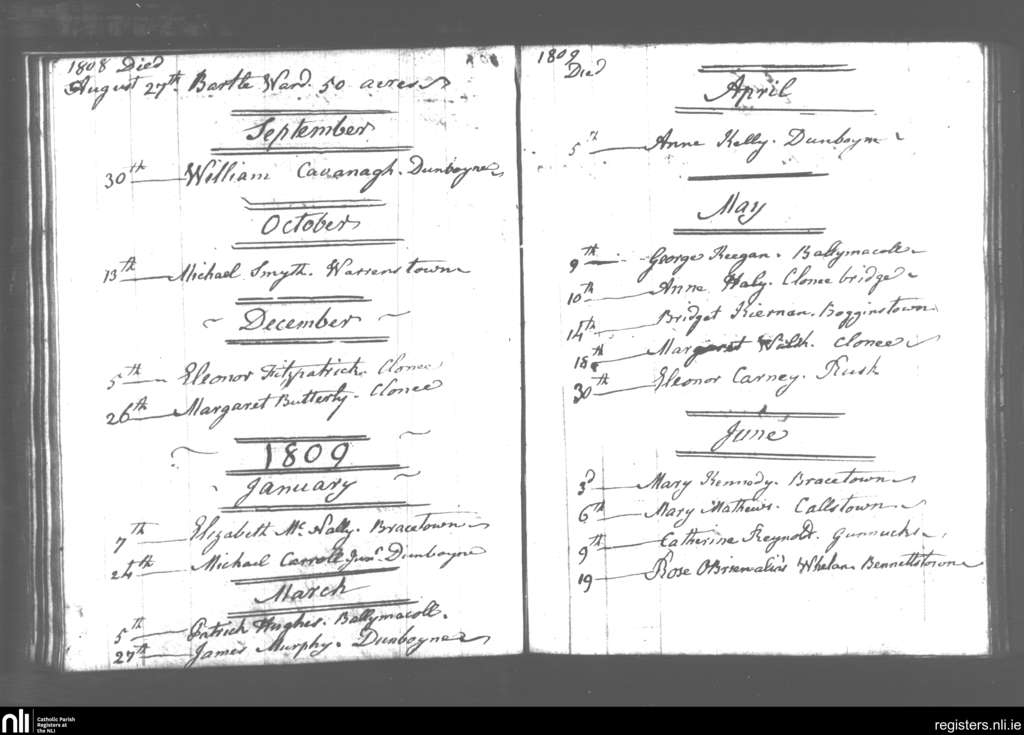 1808 Died
August 27th. Bartle Ward. 50 acres
September
30th William Cavanagh. Dunboyne
October
13th Michael Smyth. Warrenstown
December
5th Eleonor Fitzpatrick. Clonee
26th Margaret Butterly. Clonee
1809
January
7th Elizabeth Mc. Nally. Bracetown
24th Michael Carroll Junr. Dunboyne
March
5th Patrick Hughes. Ballymacoll.
27th James Murphy. Dunboyne
1809
Died
April
5th Anne Kelly. Dunboyne
May
9th George Keegan. Ballymacoll
10th Anne Haly. Clonee bridge
14th Bridget Kiernan. Bogginstown
18th Margaret Walsh. Clonee
30th Eleonor Carney. Rusk
June
3d Mary Kennedy. Bracetown
6th Mary Mathews. Callstown
9th Catherine Reynold. Gunnucks
19 Rose OBrien alias Whelan. Bennettstown
nli
Catholic Parish
Registers at
the NLI
registers.nli.ie